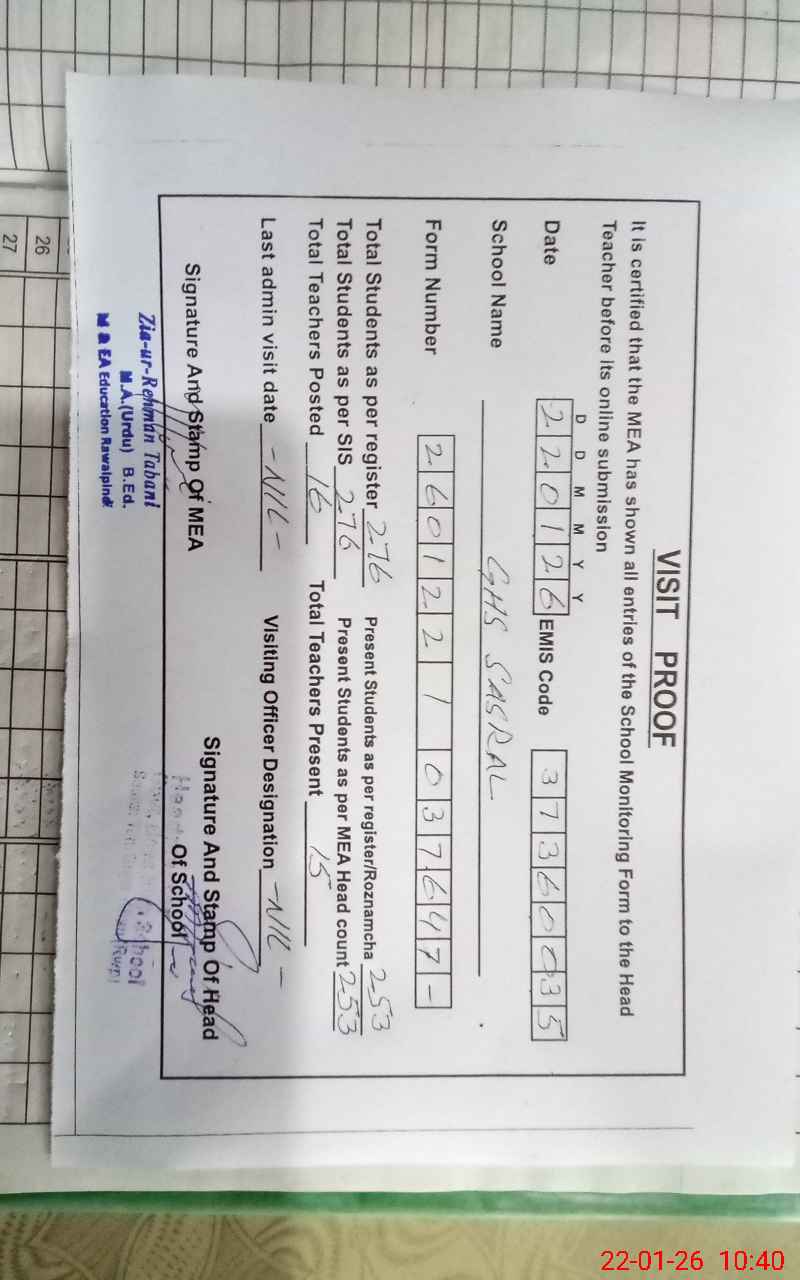 VISIT PROOF
It is certified that the MEA has shown all entries of the School Monitoring Form to the Head
Teacher before its online submission
D D M M Y Y
Date 2 2 0 1 2 6 EMIS Code 3 7 3 6 0 0 3 5
School Name GHS SASRAL
Form Number 2 6 0 1 2 2 1 0 3 7 6 4 7 -
Total Students as per register 276 Present Students as per register/Roznamcha 253
Total Students as per SIS 276 Present Students as per MEA Head count 253
Total Teachers Posted 16 Total Teachers Present 15
Last admin visit date -NIL- Visiting Officer Designation -NIL-
Signature And Stamp Of MEA Signature And Stamp Of Head
Of School
Zia-ur-Rehman Tabani
M.A.(Urdu) B.Ed.
M & EA Education Rawalpindi
School
26
27
22-01-26 10:40